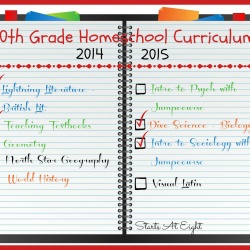 0th Grade Homeschool Curriculum
2014
2015
Lightning Literature -
British Lit
Teaching Textbooks
Geometry
North Star Geography
World History
Intro to Psych with
Jumpcourse
Dive Science - Biology
Intro to Sociology with
Jumpcourse
Visual Latin
Starts At Eight